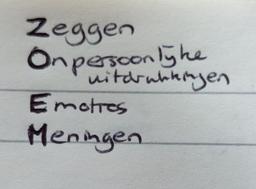 Zeggen
Onpersoonlijke
uitdrukkingen
Emoties
Meningen